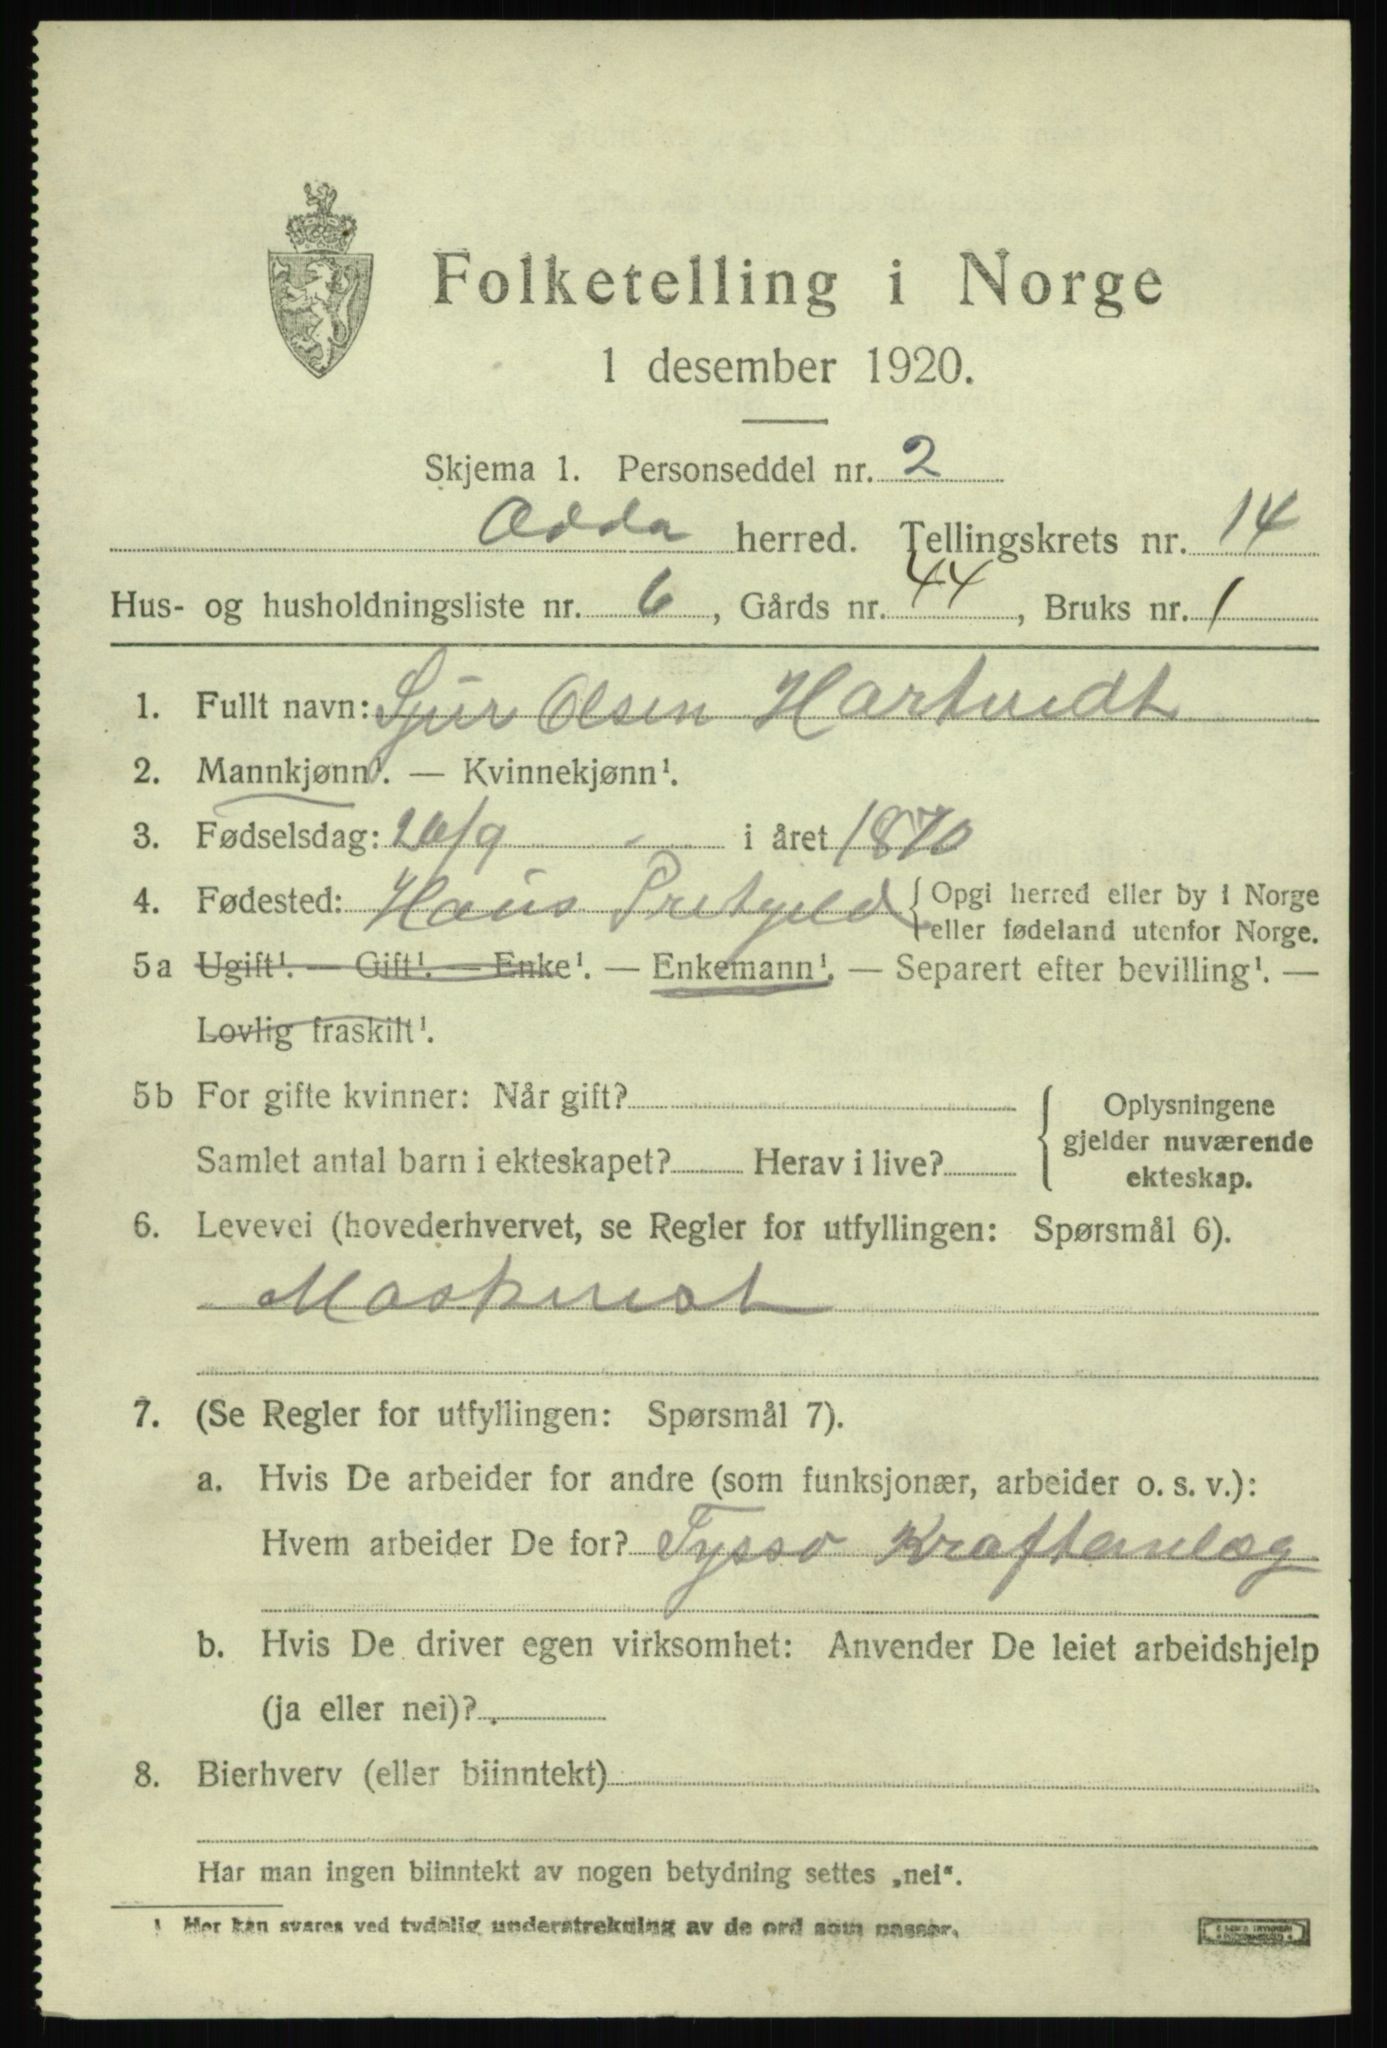 Folketelling i Norge
1 desember 1920.
Skjema 1. Personseddel nr. 2
Odda herred. Tellingskrets nr. 14
Hus- og husholdningsliste nr. 6, Gårds nr. 44, Bruks nr. 1
1. Fullt navn: Sjur Olsen Hartveidt
2. Mannkjønn¹. — Kvinnekjønn¹.
3. Fødselsdag: 26/9 - i året 1870
4. Fødested: Haus Pretgjeld { Opgi herred eller by i Norge
eller fødeland utenfor Norge.
5a Ugift¹. — Gift¹. — Enke¹. — Enkemann¹. — Separert efter bevilling¹. —
Lovlig fraskilt¹.
5b For gifte kvinner: Når gift?
Samlet antal barn i ekteskapet? Herav i live?
{ Oplysningene
gjelder nuværende
ekteskap.
6. Levevei (hovederhvervet, se Regler for utfyllingen: Spørsmål 6).
Maskinist
7. (Se Regler for utfyllingen: Spørsmål 7).
a. Hvis De arbeider for andre (som funksjonær, arbeider o. s. v.):
Hvem arbeider De for? Tysso Kraftanlæg
b. Hvis De driver egen virksomhet: Anvender De leiet arbeidshjelp
(ja eller nei)?
8. Bierhverv (eller biinntekt)
Har man ingen biinntekt av nogen betydning settes „nei“.
¹ Her kan svares ved tydelig understrekning av de ord som passer.